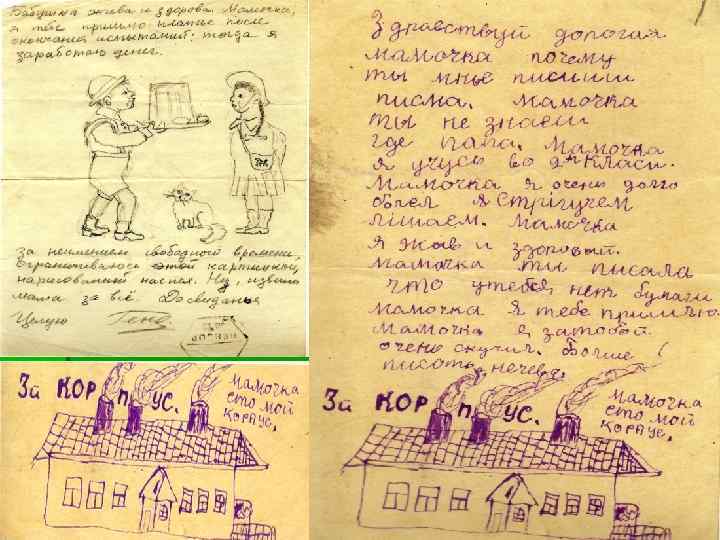 Бабушка жива и здорова. Мамочка,
я тебе пришлю платие после
окончания испытаний: тогда я
заработаю денег.
за неимением свободного времени,
ограничиваюсь этой картинкой,
нарисованной наспех. Ну, извини
мама за всё. До свиданья
Целую Гена
3й КОРПУС.
мамочка
ето мой
корпус.
Здравствуй дорогая
мамочка почему
ты мне пишиш
писма. мамочка
ты не знаеш
где папа. Мамочка
я учусь во 2м класи.
Мамочка я очень долго
болел я стрігучем
лішаем. Мамочка
я жив и здоровый.
мамочка ти писала
что у тебя нет бумаги
мамочка я тебе пришлю.
мамочка я затобой
очень скучил. Болше
писать нечево.
3й КОРПУС.
мамочка
ето мой
корпус.